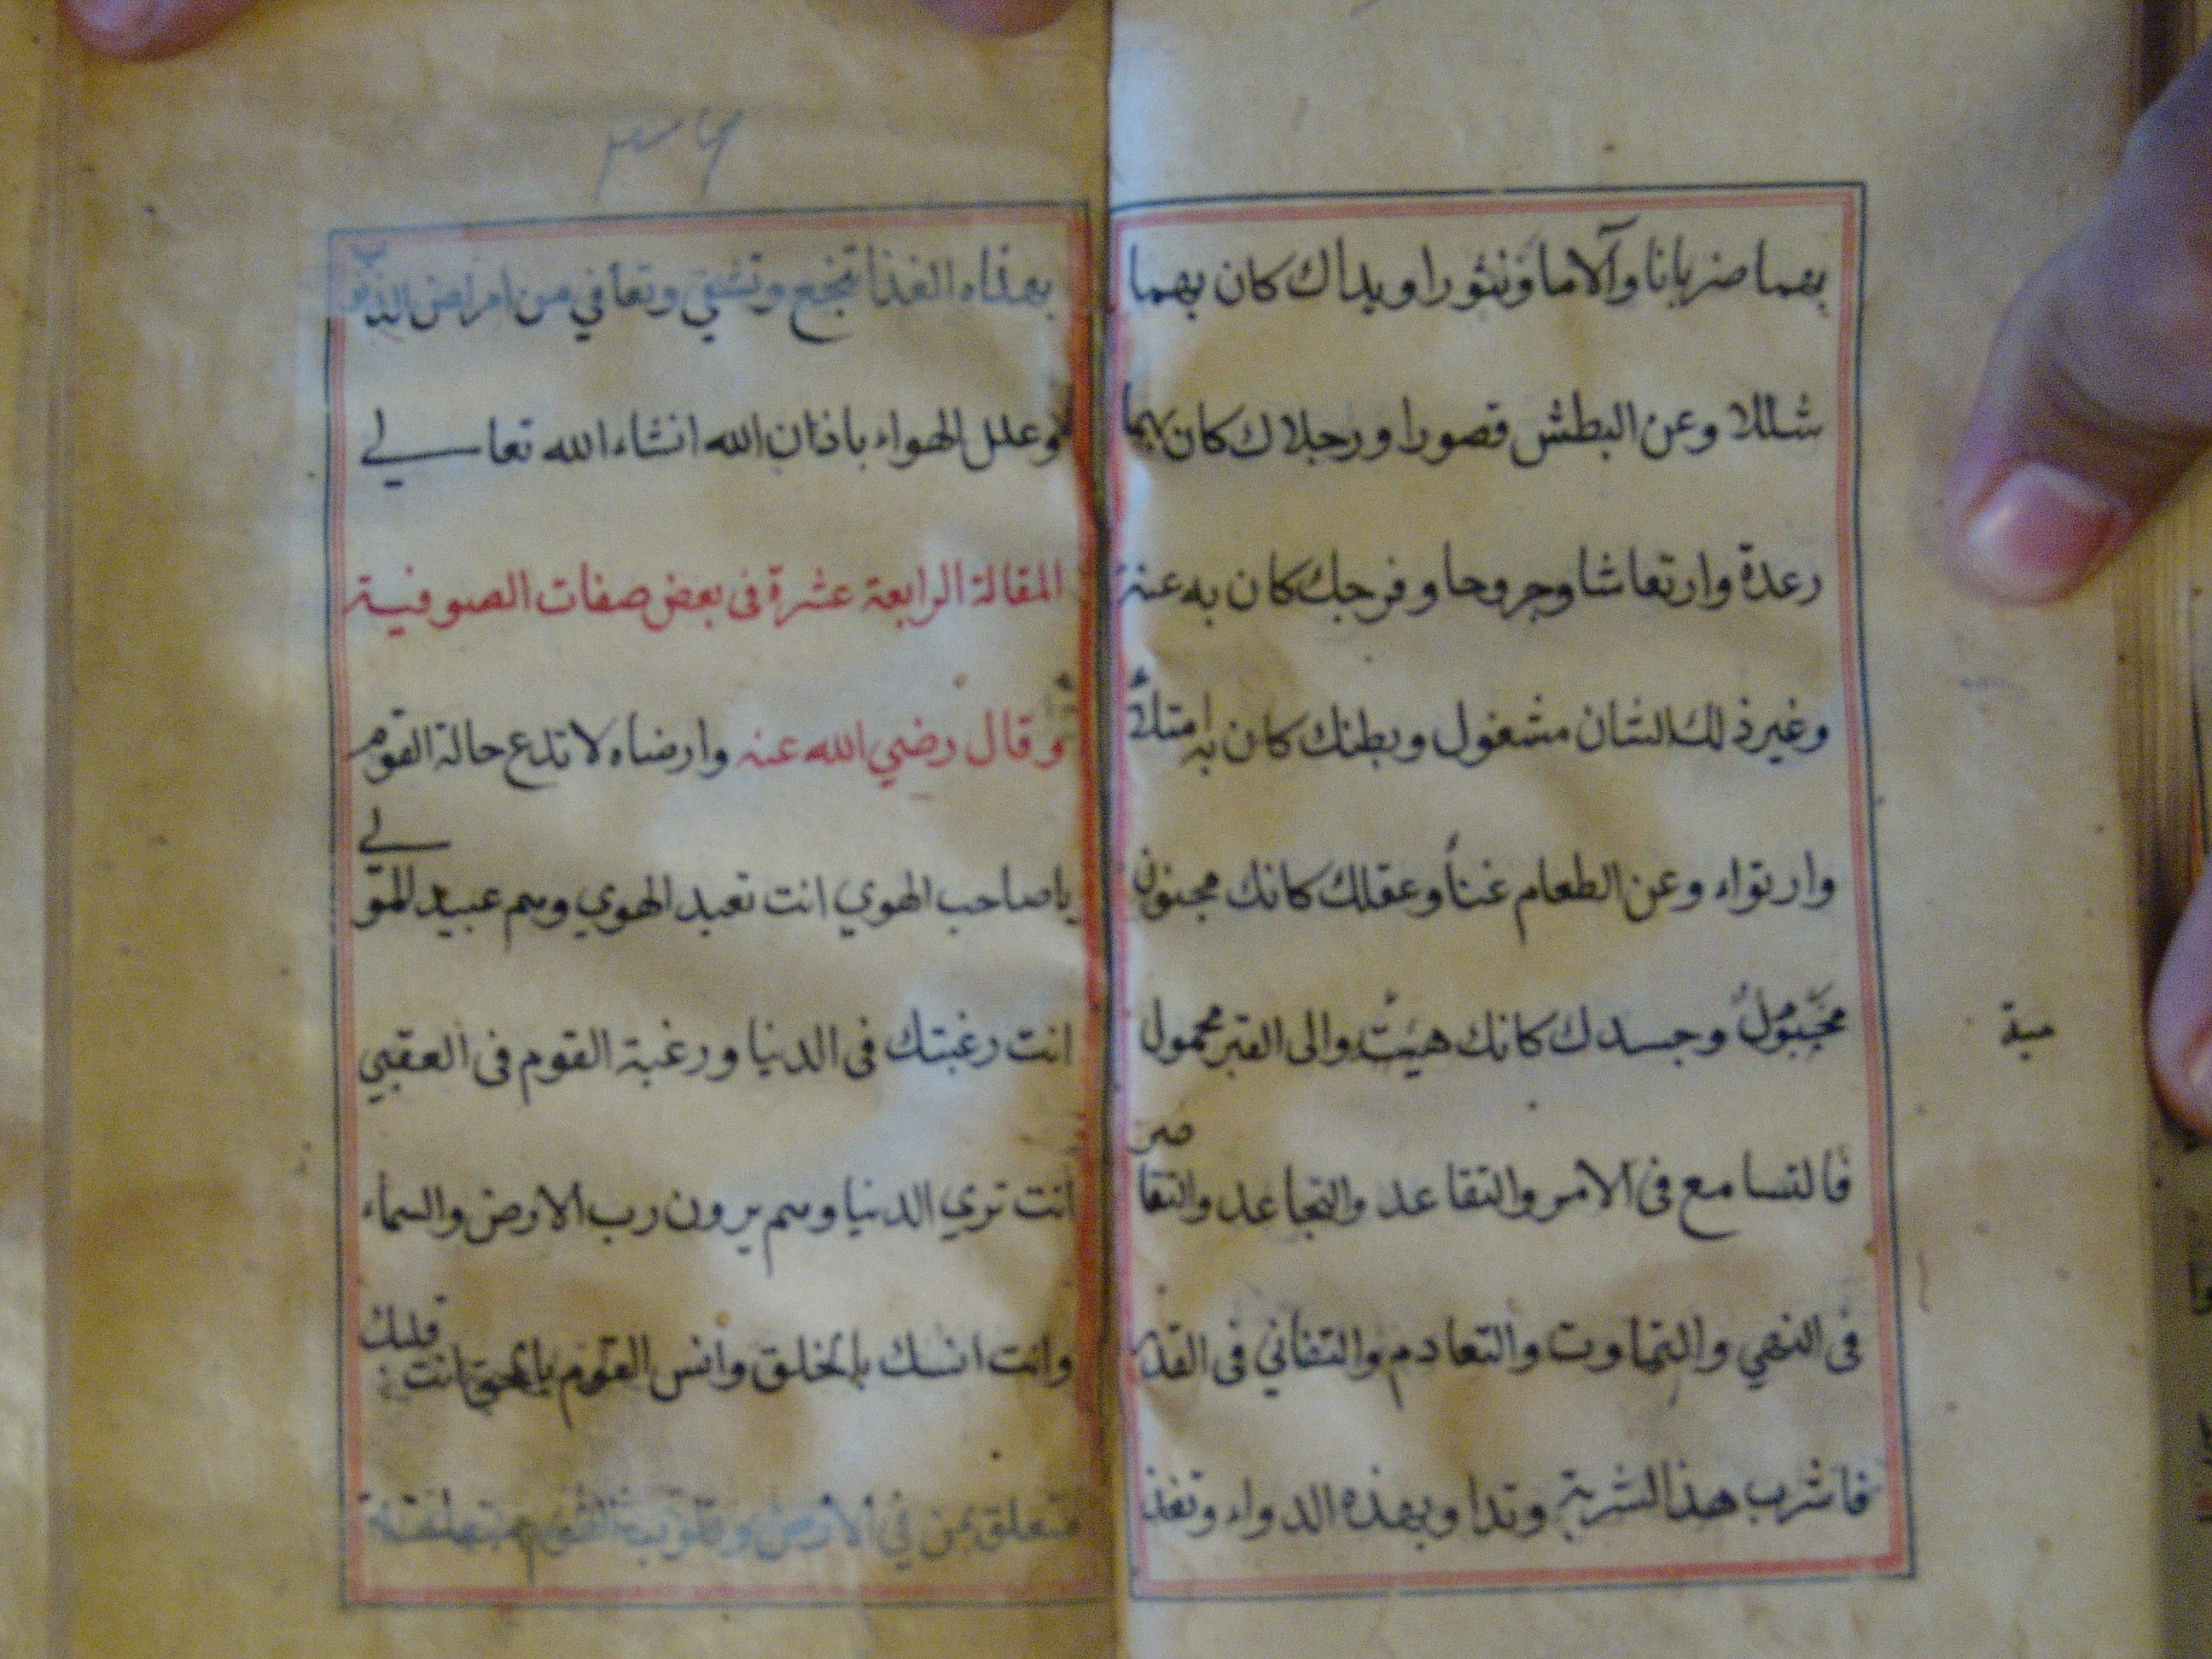 بهما ضربانا وآلاما ونثورا ويداك كان بهما
شللا وعن البطش قصورا ورجلاك كان بهما
رعدة وارتعاشا وجروحا وفرجك كان به عنة
وغير ذلك الشان مشغول وبطنك كان به امتلاء
وارتواء وعن الطعام غناً وعقلك كانك مجنون
مخبول وجسدك كانك ميت والى القبر محمول
ميتة
فالتسامع فى الامر والتقاعد والتجاعد والتقاصر
فى النهي والتماوت والتعادم والتفاني فى القدر
فاشرب هذا الشربة وتداو بهذه الدواء وتغذ
٣٦
بهذاه الغذا تنجع وتشفي وتعافي من امراض الذنوب
وعلل الهواء باذان الله انشاء الله تعالي
المقالة الرابعة عشرة فى بعض صفات الصوفية
وقال رضي الله عنه وارضاه لا تدع حالة القوم
ياصاحب الهوي انت تعبد الهوي وهم عبيد المولي
انت رغبتك فى الدنيا ورغبة القوم فى العقبي
انت تري الدنيا وهم يرون رب الارض والسماء
وانت انسك بالخلق وانس القوم بالحق انت قلبك
متعلق بمن في الارض وقلوب القوم متعلقة